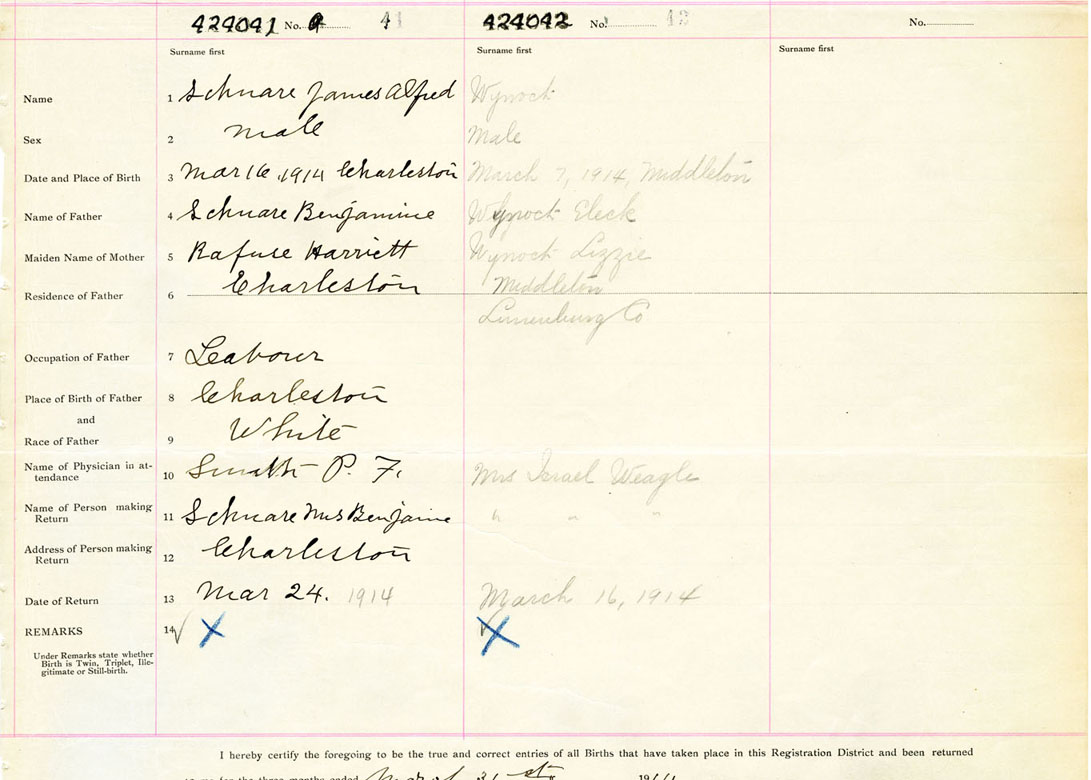 424041 No. 41 424042 No. 42 No.
Surname first Surname first Surname first
Name 1 Schnare James Alfred Wynock
Sex 2 male Male
Date and Place of Birth 3 Mar 16, 1914 Charleston March 7, 1914, Middleton
Name of Father 4 Schnare Benjamine Wynock Eleck
Maiden Name of Mother 5 Rafuse Harriett Wynock Lizzie
Residence of Father 6 Charleston Middleton
Lunenburg Co
Occupation of Father 7 Leabour
Place of Birth of Father 8 Charleston
and
Race of Father 9 White
Name of Physician in at-
tendance 10 Smith P. F. Mrs Israel Weagle
Name of Person making
Return 11 Schnare Mrs Benjamine " " "
Address of Person making
Return 12 Charleston
Date of Return 13 Mar 24. 1914 March 16, 1914
REMARKS 14
Under Remarks state whether
Birth is Twin, Triplet, Ille-
gitimate or Still-birth.
I hereby certify the foregoing to be the true and correct entries of all Births that have taken place in this Registration District and been returned
to me for the three months ended March 31st 19